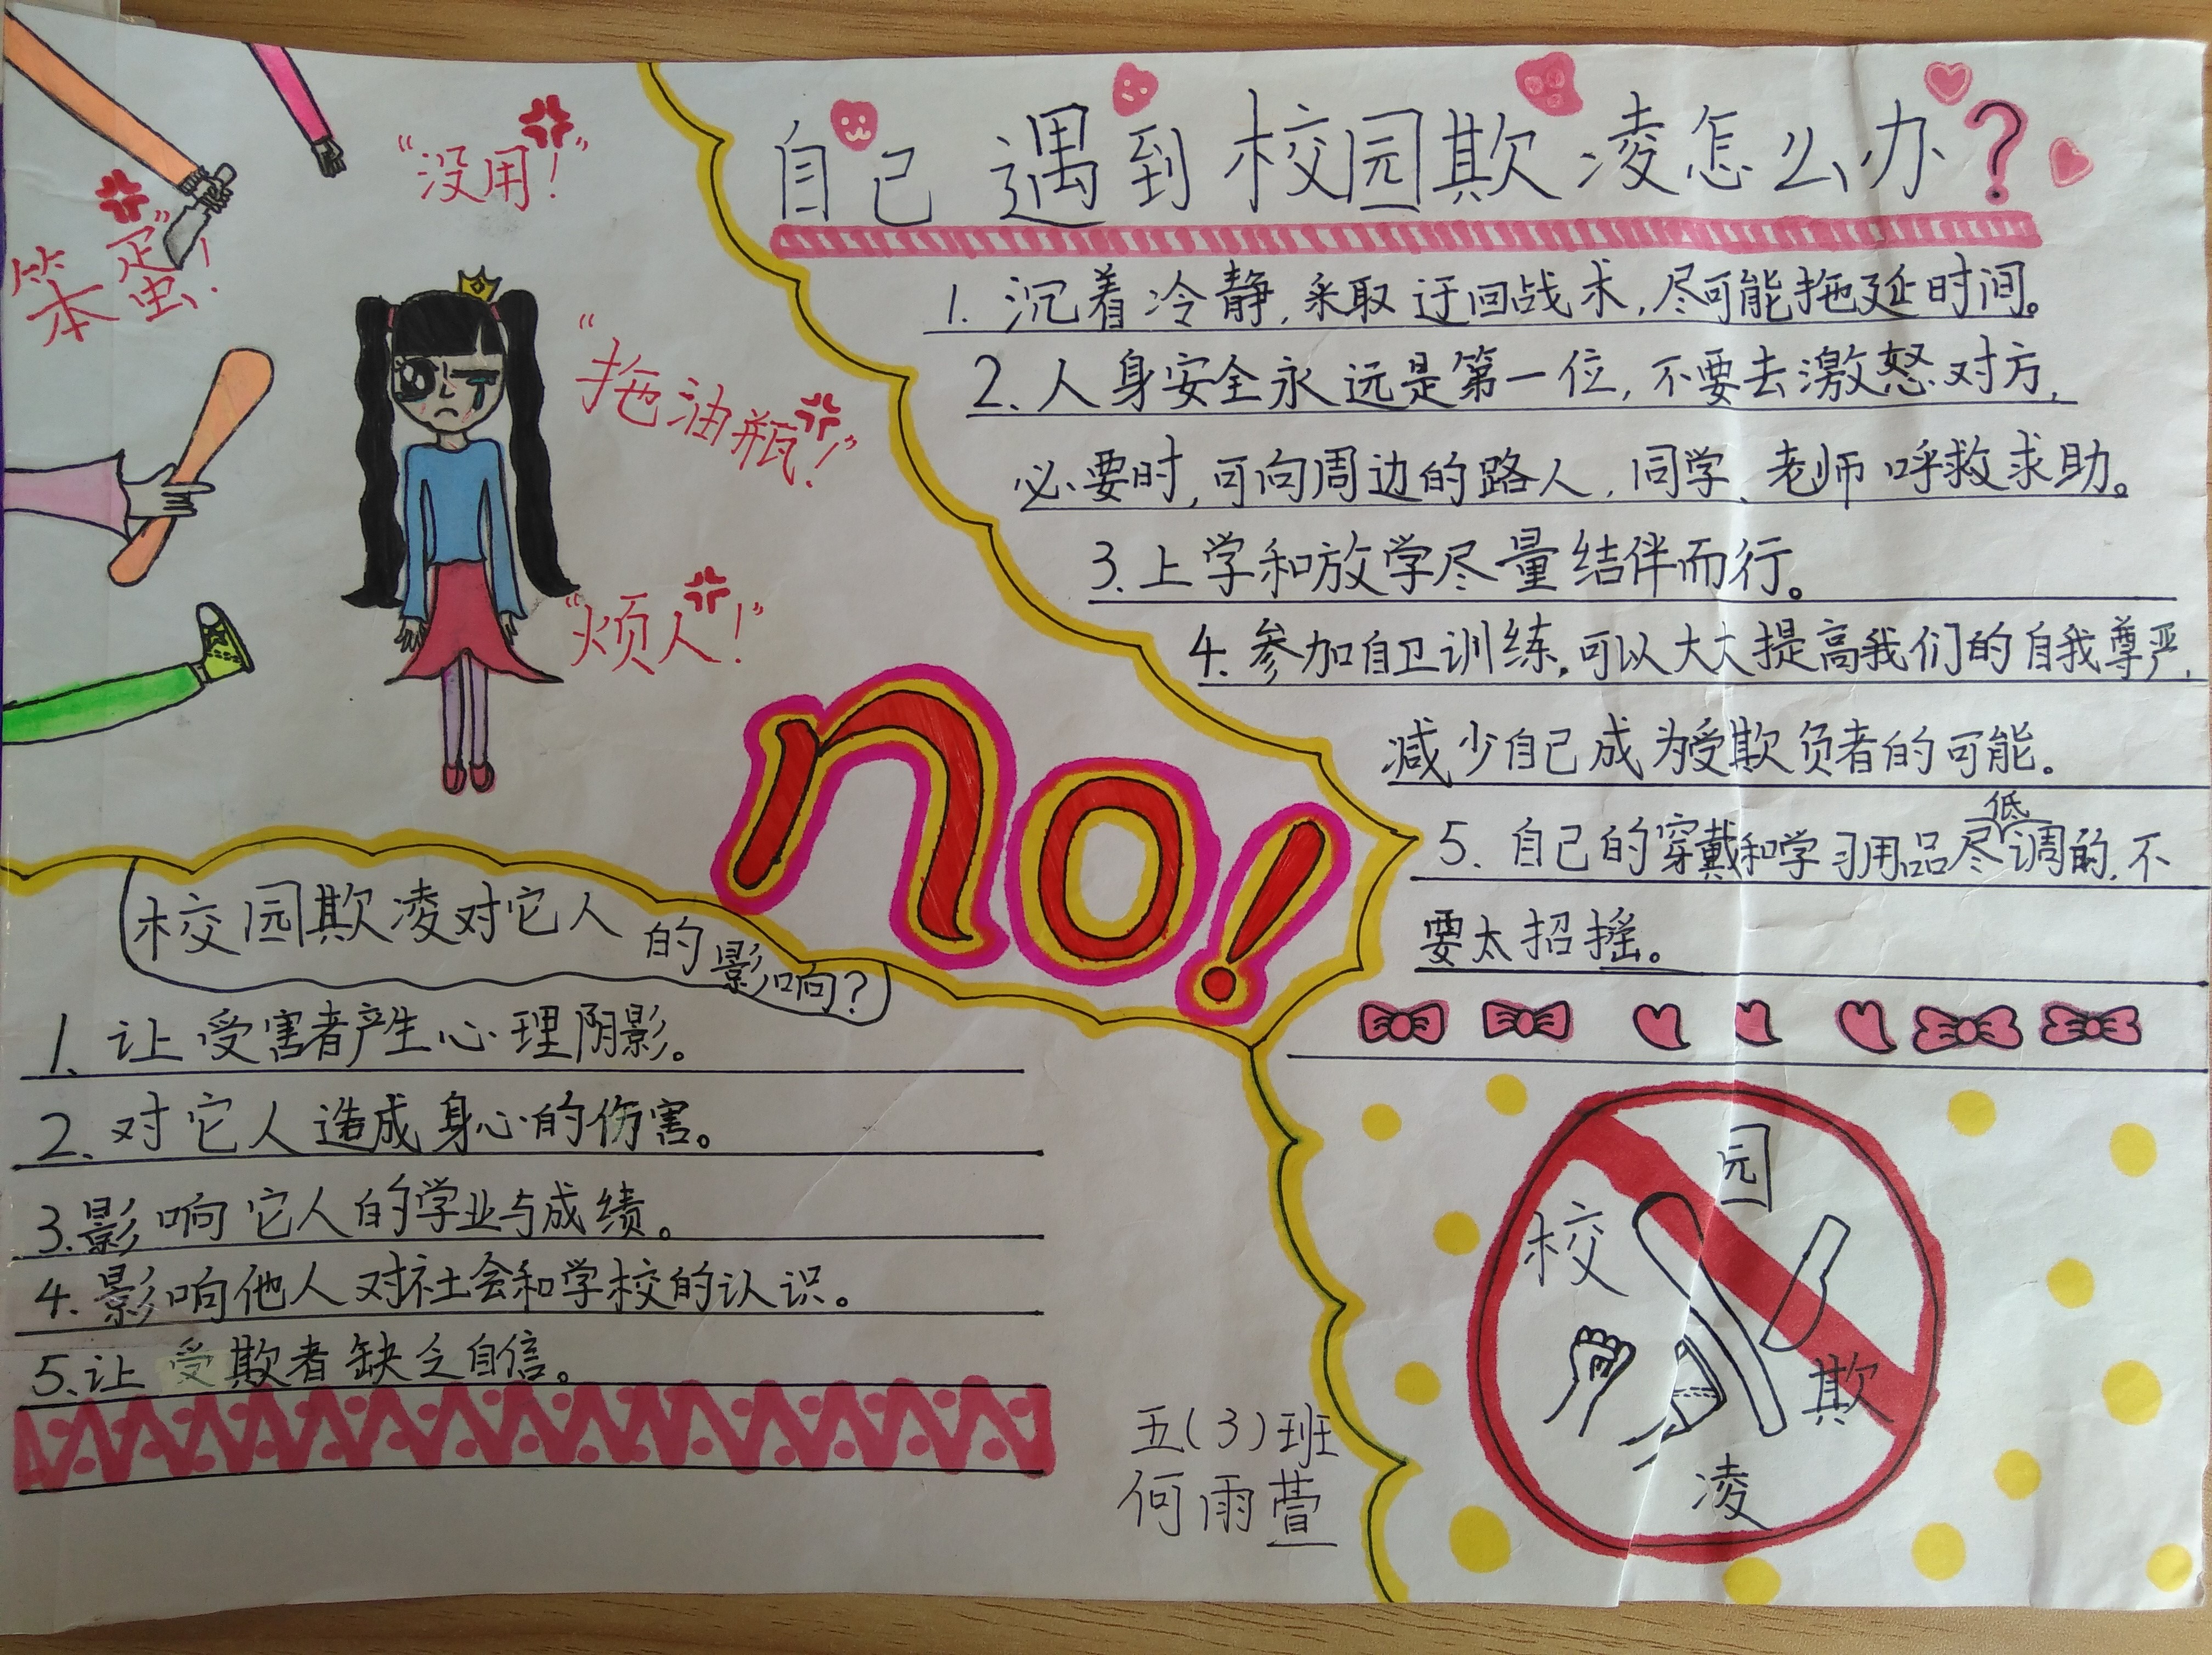 “没用！”
“笨蛋！”
“拖油瓶！”
“烦人！”
no！
自己遇到校园欺凌怎么办？
1. 沉着冷静,采取迂回战术,尽可能拖延时间。
2、人身安全永远是第一位,不要去激怒对方,
必要时,可向周边的路人,同学、老师呼救求助。
3.上学和放学尽量结伴而行。
4.参加自卫训练,可以大大提高我们的自我尊严,
减少自己成为受欺负者的可能。
5、自己的穿戴和学习用品尽低调的,不
要太招摇。
校园欺凌对它人的影响？
1、让受害者产生心理阴影。
2、对它人造成身心的伤害。
3.影响它人的学业与成绩。
4.影响他人对社会和学校的认识。
5.让受欺者缺乏自信。
五(3)班
何雨萱
校园欺凌